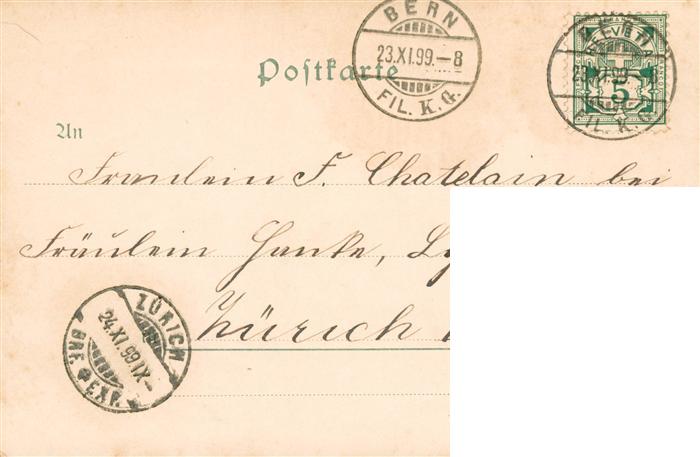 BERN
23.XI.99.–8
FIL. K. G.
HELVETIA
5
23.XI.99
FIL. K. G.
Postkarte
An
Fraulein F. Chatelain bei
Fräulein Hanke,
Zürich
ZÜRICH
24.XI.99.IX–
BRF. EXP.